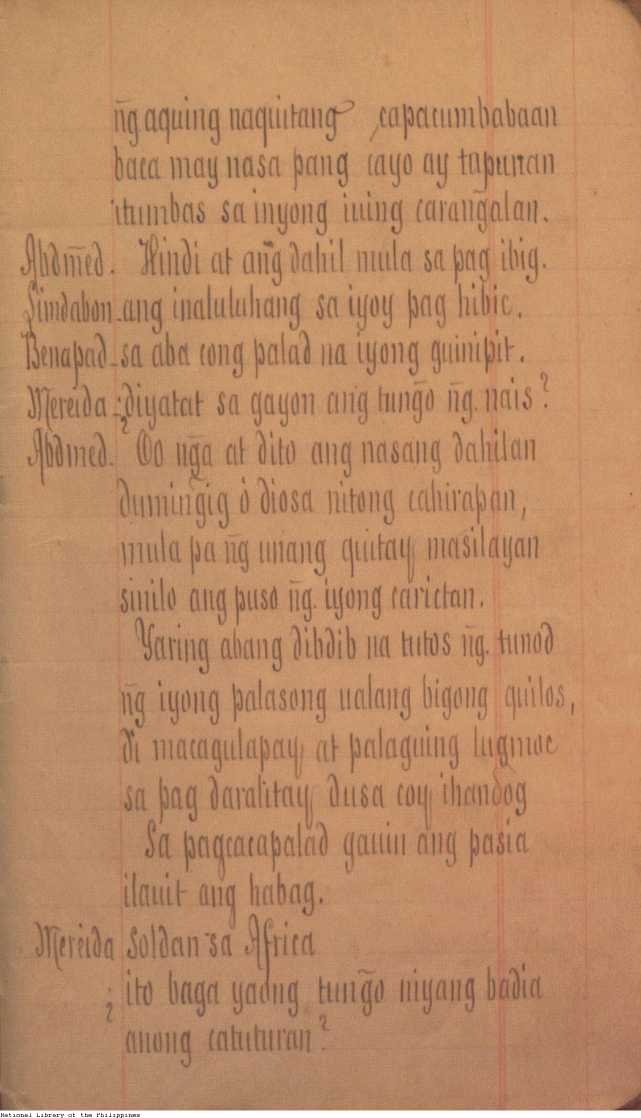 n̄g aquing naquitang capacumbabaan
baca may nasa pang cayo ay tapunan
itumbas sa inyong iuing caran̄galan.
Abdmed. Hindi at an̄g dahil mula sa pag ibig.
Simdabon - ang inaluluhang sa iyoy pag hibic.
Benapad - sa aba cong palad na iyong guinipit.
Mereida - ¿diyatat sa gayon ang tun̄go n̄g. nais?
Abdmed. Oo n̄ga at dito ang nasang dahilan
dumin̄gig ò diosa nitong cahirapan,
mula pa n̄g unang quitay masilayan
sinilo ang puso n̄g. iyong carictan.
Yaring abang dibdib na tutos n̄g. tunod
n̄g iyong palasong ualang bigong quilos,
di macagulapay at palaguing lugmoc
sa pag daralitay dusa coy ihandog
Sa pagcacapalad gauin ang pasia
ilauit ang habag.
Mereida Soldan sa Africa
¿ito baga yaong tun̄go niyang badia
anong catuturan?
National Library of the Philippines